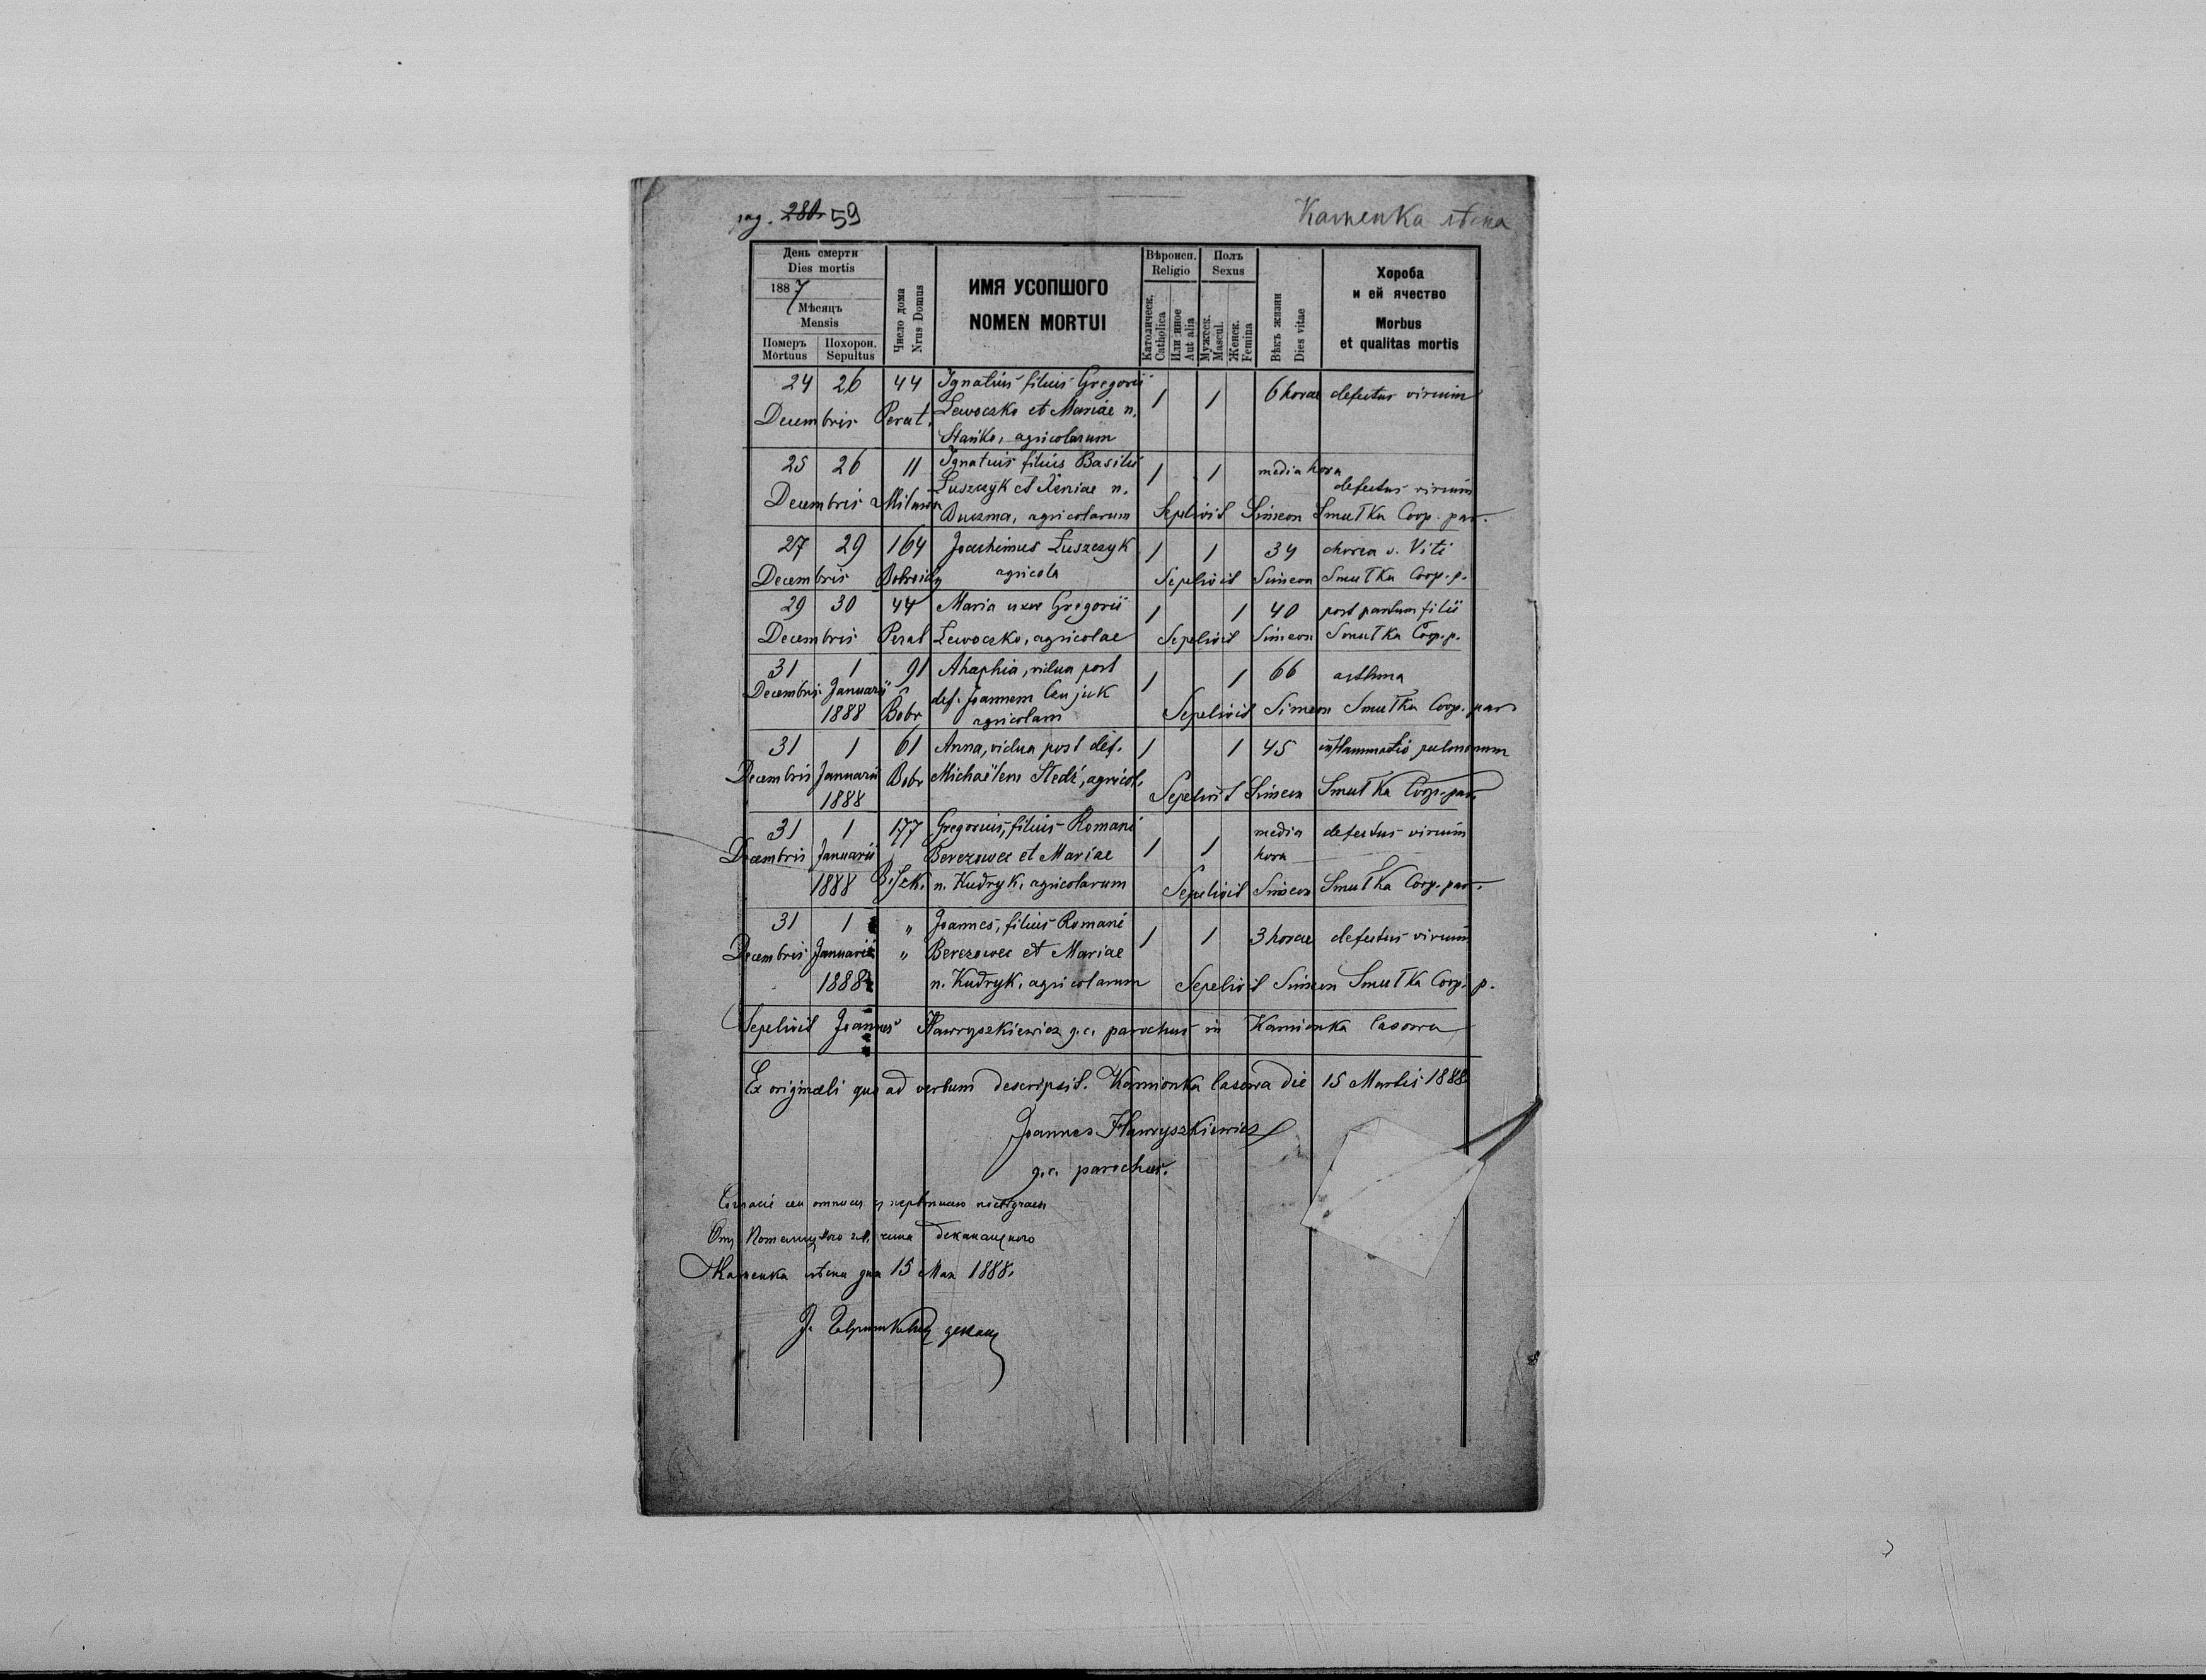 pag. 280 59
Kamenka лѣсна
День смерти
Dies mortis
1887
Мѣсяць
Mensis
Померъ Похорон.
Mortuus Sepultus
Число дома
Nrus Domus
ИМЯ УСОПШОГО
NOMEN MORTUI
Вѣроисп.
Religio
Католическ.
Catholica
Или иное
Aut alia
Полъ
Sexus
Мужеск.
Mascul.
Женск.
Femina
Вѣкъ жизни
Dies vitae
Хороба
и ей ячество
Morbus
et qualitas mortis
24 26 44 Ignatius filius Gregorii 1 1 6 horae defectus virium
Decembris Perat. Lewoczko et Mariae n.
Stańko, agricolarum
25 26 11 Ignatius filius Basilii 1 1 media hora
defectus virium
Decembris Łuszczyk et Xeniae n.
Buczma, agricolarum Sepelivit Simeon Smutka Coop. par.
27 29 164 Joachimus Łuszczyk 1 1 34 chorea s. Viti
Decembris agricola Sepelivit Simeon Smutka Coop. p.
29 30 44 Maria uxor Gregorii 1 1 40 post partum filii
Decembris Perat Lewoczko, agricolae Sepelivit Simeon Smutka Coop. p.
31 1 91 Ahaphia, vidua post 1 1 66 asthma
Decembris Januarii def. Joannem
1888 Bobr agricolam Sepelivit Simeon Smutka Coop. par
31 1 61 Anna, vidua post def. 1 1 45 inflammatio pulmonum
Decembris Januarii Bobr Michaëlem agricol.
1888 Sepelivit Simeon Smutka Coop. par.
31 1 177 Gregorius, filius Romani 1 1 media defectus virium
Decembris Januarii Berezowec et Mariae hora
1888 n. Kudryk, agricolarum Sepelivit Simeon Smutka Coop. par.
31 1 " Joannes, filius Romani 1 1 3 horae defectus virium
Decembris Januarii " Berezowec et Mariae
1888 n. Kudryk, agricolarum Sepelivit Simeon Smutka Coop. p.
Sepelivit Joannes Hawryszkiewicz g.c. parochus in Kamionka lasowa
Ex originali quo ad verbum descripsit. Kamionka lasowa die 15 Martis 1888
Joannes Hawryszkiewicz
g.c. parochus.
Каменка лѣсна дня 15 Мая 1888.